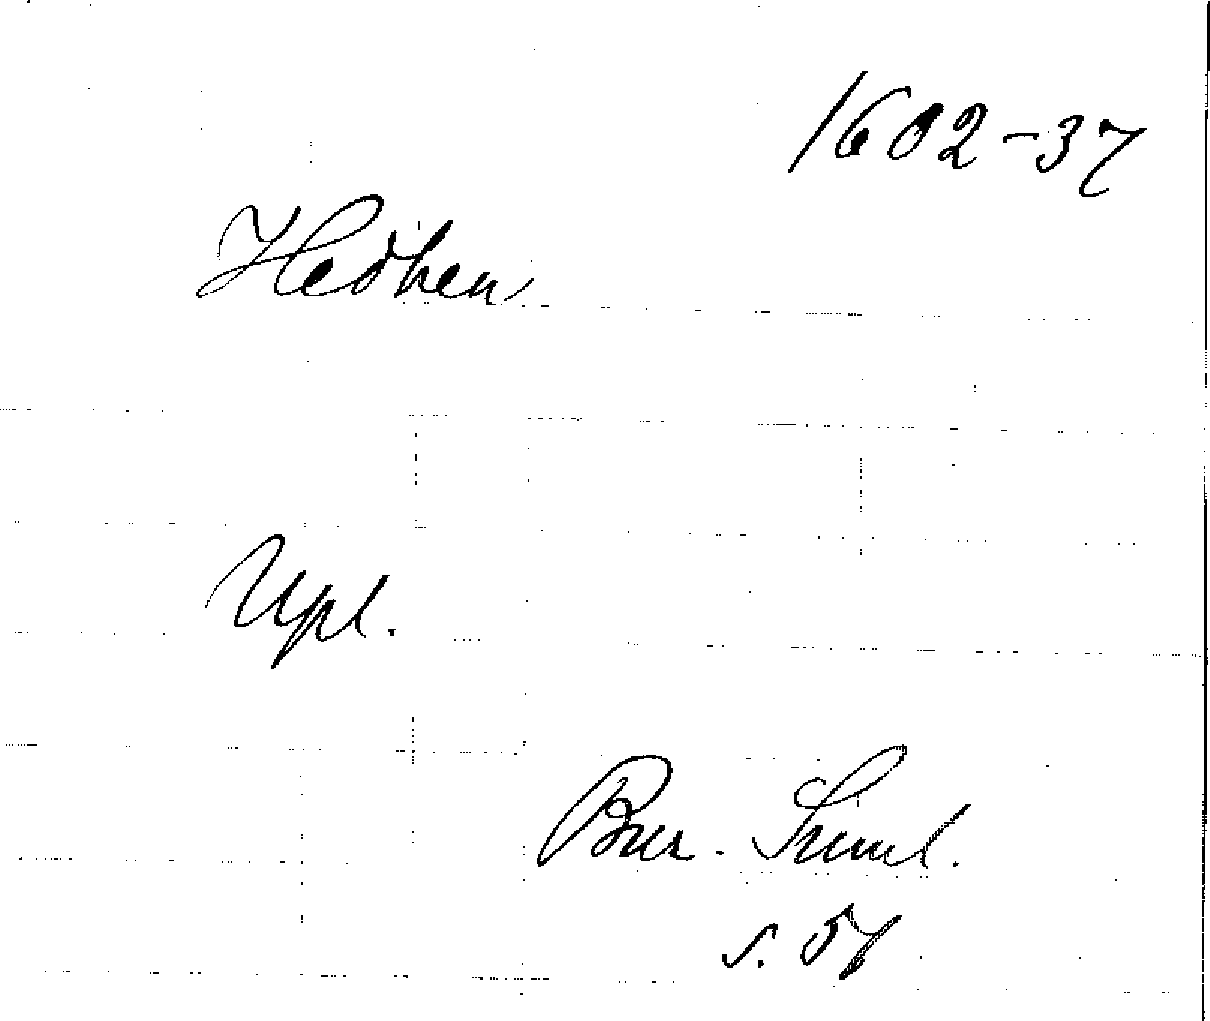 1602-37
Hedhen
Upl.
Bur. Suml.
s. 57